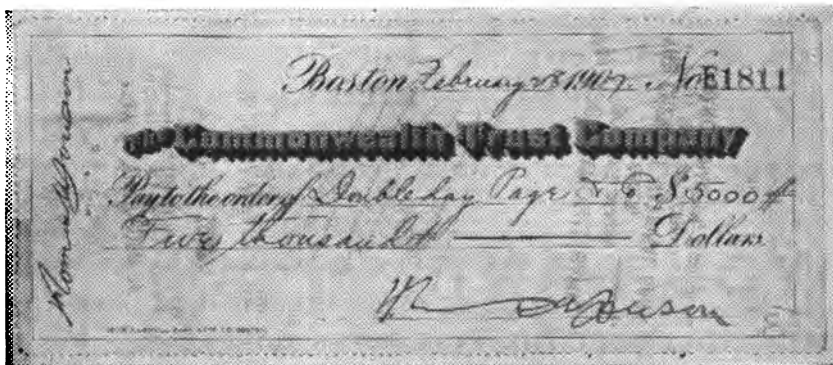 Boston February 28 1907. No E1811
The Commonwealth Trust Company
Pay to the order of Doubleday Page & Co $5000
Five thousand ——— Dollars
Thomas W Lawson